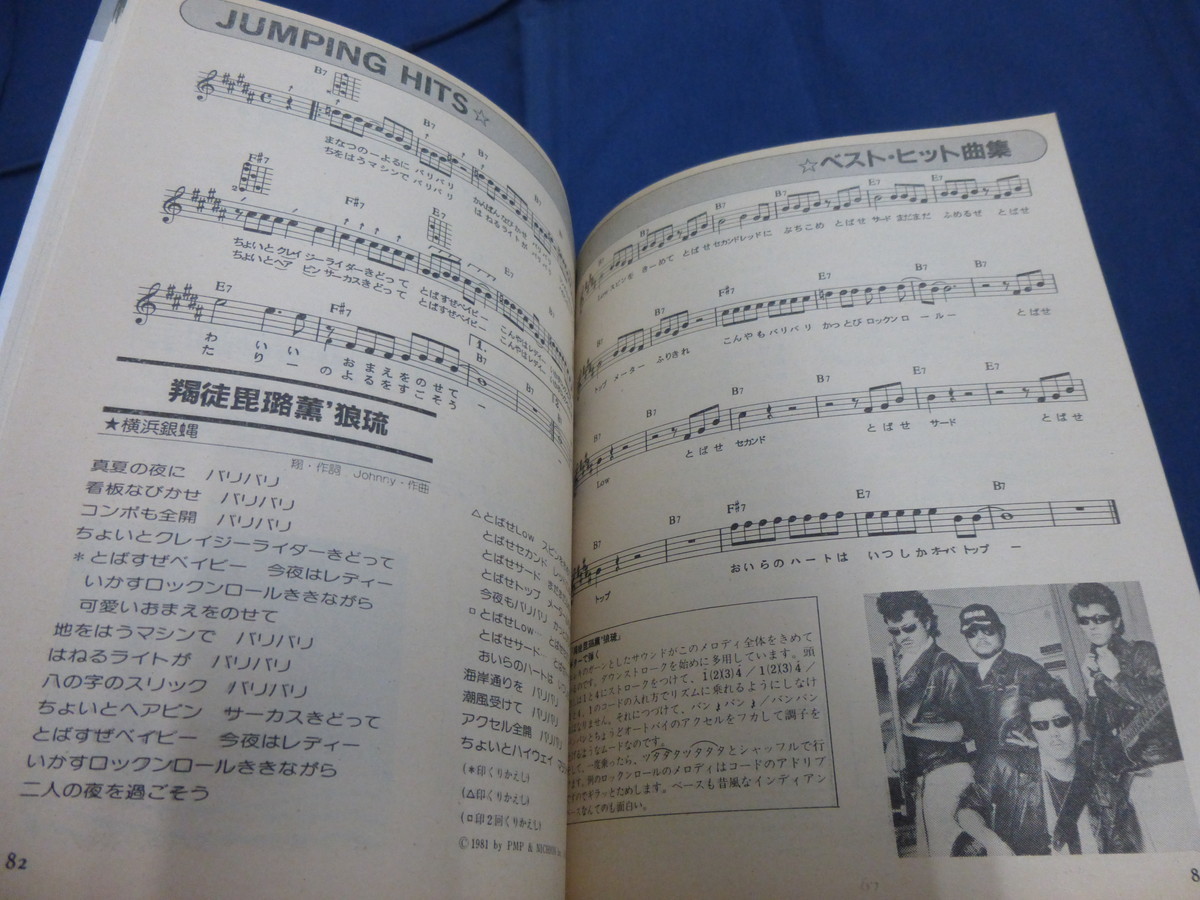 JUMPING HITS☆
B7
B7
B7
まなつのーよるに バリバリ
ちをはうマシンで バリバリ
かんばんなびかせ バリバリ
はねるライトが バリバリ
F#7
F#7
E7
ちょいとクレイジーライダーきどって とばすぜベイビー こんやはレディー
ちょいとヘアピンサーカスきどって とばすぜベイビー こんやはレディー
E7
F#7
B7
B7
わいい おまえをのせてー
たりー のよるをすごそう
羯徒毘璐薫'狼琉
★横浜銀蝿
翔・作詞 Johnny・作曲
真夏の夜に バリバリ
看板なびかせ バリバリ
コンポも全開 バリバリ
ちょいとクレイジーライダーきどって
*とばすぜベイビー 今夜はレディー
いかすロックンロールききながら
可愛いおまえをのせて
地をはうマシンで バリバリ
はねるライトが バリバリ
八の字のスリック バリバリ
ちょいとヘアピン サーカスきどって
とばすぜベイビー 今夜はレディー
いかすロックンロールききながら
二人の夜を過ごそう
△とばせLow スピンを
とばせセカンド
とばせサード
とばせトップ メーター
今夜もバリバリ
□とばせLow…
とばせサード…
おいらのハートは
海岸通りを バリバリ
潮風受けて バリバリ
アクセル全開 バリバリ
ちょいとハイウェイ
(*印くりかえし)
(△印くりかえし)
(□印2回くりかえし)
©1981 by PMP &
82
☆ベスト・ヒット曲集
B7
B7
E7
E7
Lowスピンを きーめて とばせ セカンドレッドに ぶちこめ とばせ サード まだまだ ふめるぜ とばせ
B7
F#7
E7
B7
B7
トップ メーター ふりきれ こんやもバリバリ かっとびロックンロールー とばせ
B7
B7
B7
E7
E7
Low とばせ セカンド とばせ サード とばせ
B7
B7
F#7
E7
B7
トップ おいらのハートは いつしかオーバトップー
羯徒毘璐薫'狼琉」
ターで弾く
ガーンとしたサウンドがこのメロディ全体をきめて
るのです。ダウンストロークを始めに多用しています。頭
は1と4にストロークをつけて、1(2)(3)4/1(2)(3)4/
す。1のコードの入れ方でリズムに乗れるようにしなけ
ばなりません。それにつづけて、バン♪バン♪/バンバン
バンとちょうどオートバイのアクセルをフカして調子を
げるようなムードなのです。
して、一度乗ったら、ツタタタツタタタとシャッフルで行
す。例のロックンロールのメロディはコードのアドリブ
なのでギラッとためします。ベースも昔風なインディアン
ースなんてのも面白い。
8